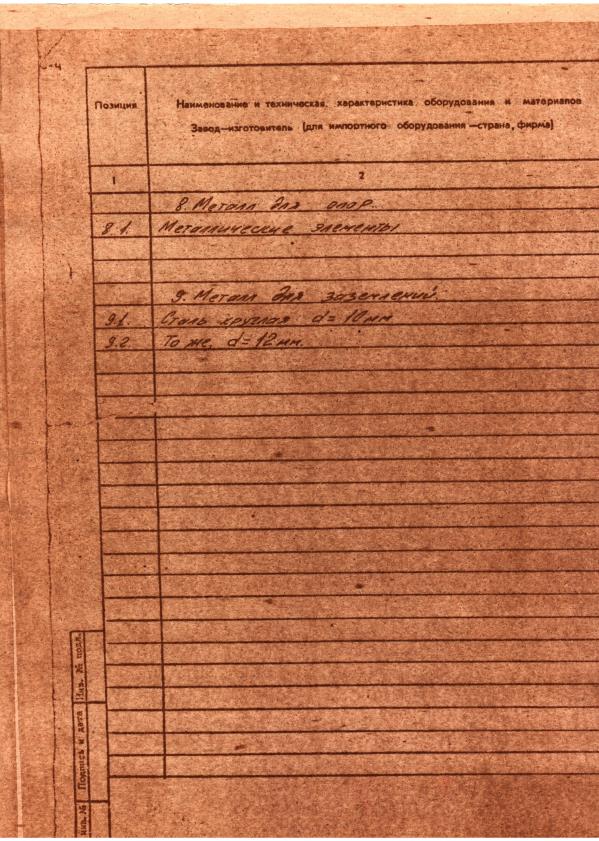 -4
Позиция
Наименование и техническая характеристика оборудования и материалов
Завод—изготовитель (для импортного оборудования —страна, фирма)
1 2
8. Металл для опор.
8.1. Металлические элементы
9. Металл для заземлений.
9.1. Сталь круглая d=10мм
9.2. То же, d=12мм.
Инв. № подл.
Подпись и дата
инв. №